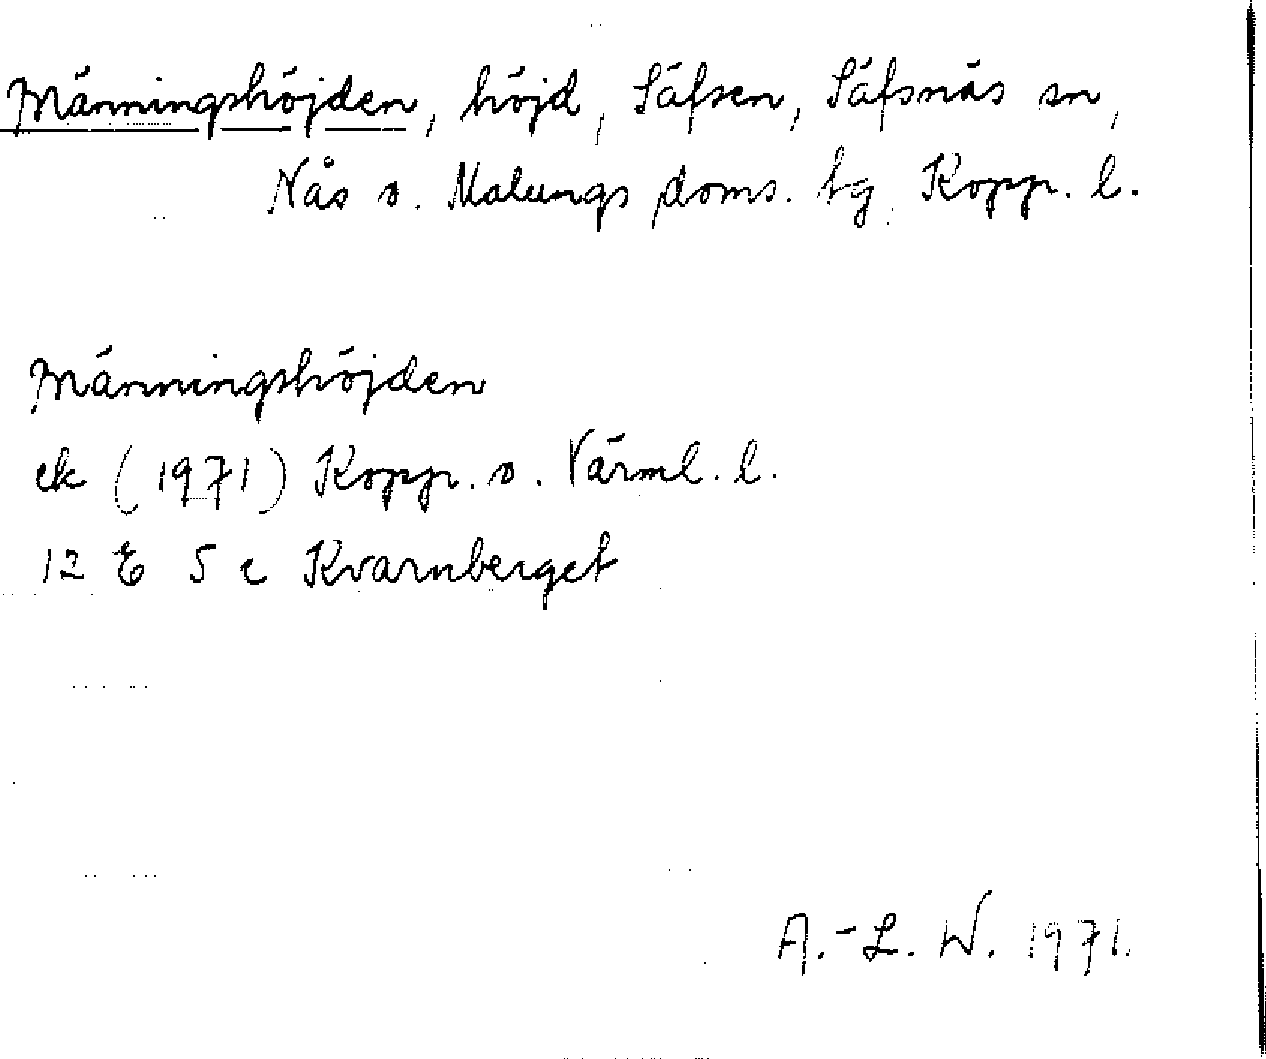 Männingshöjden, höjd, Säfsen, Säfsnäs sn,
Nås o. Malungs doms. tg, Kopp. l.
Männingshöjden
ek (1971) Kopp. o. Värml. l.
12 E 5 c Kvarnberget
A.-L. W. 1971.